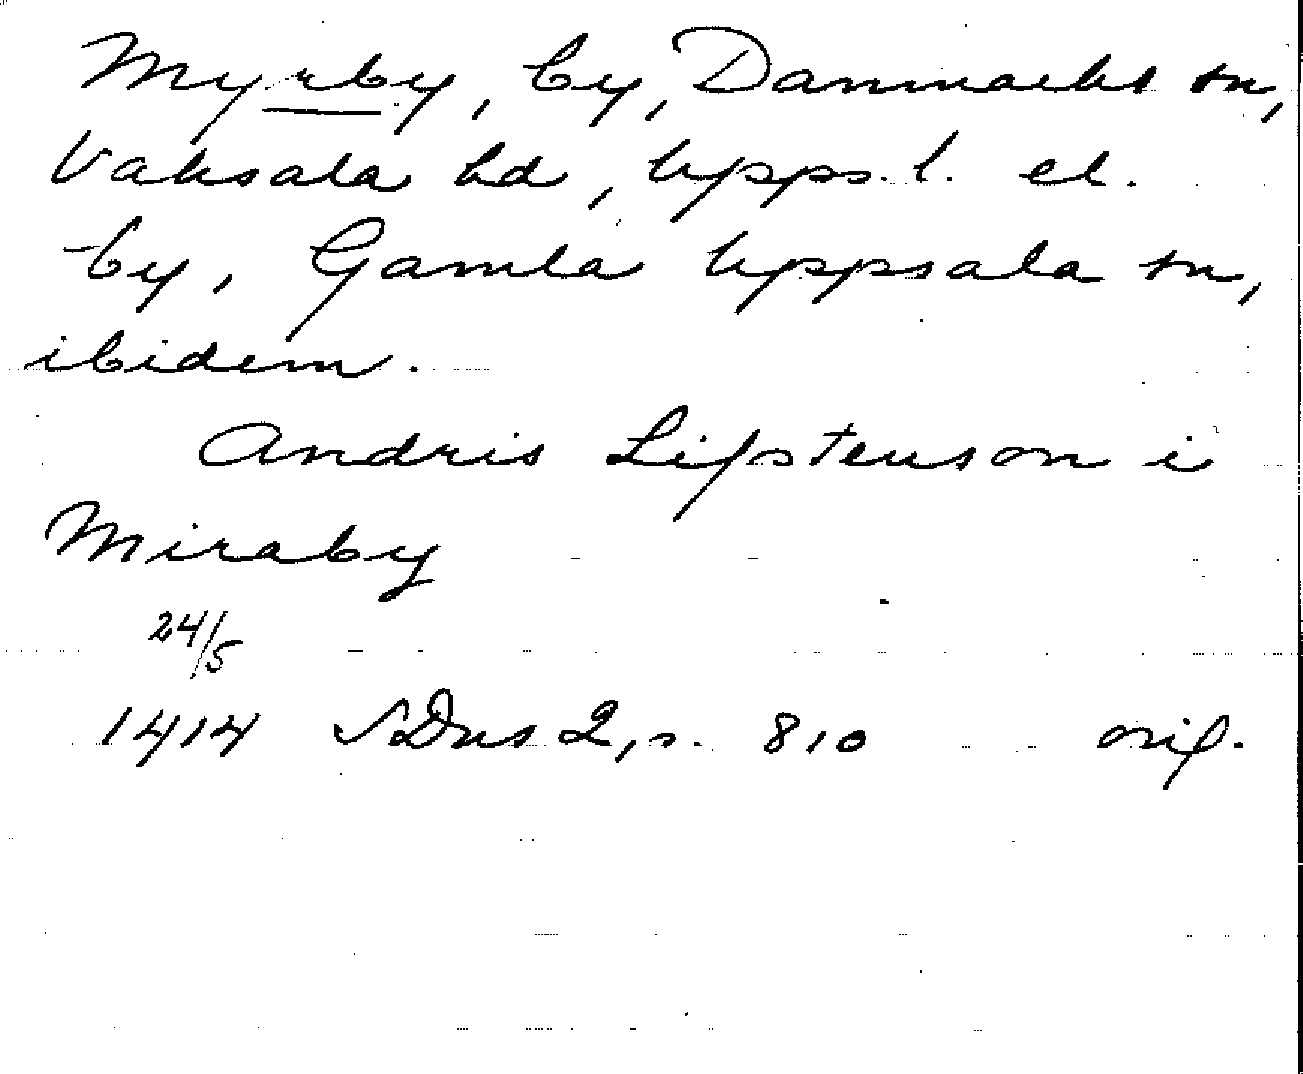 Myrby, by, Danmarks sn,
Vaksala hd, Upps. l. el.
by, Gamla Uppsala sn,
ibidem.
Andris Lifstenson i
Miraby
24/5
1414 SDns 2, s. 810 orig.